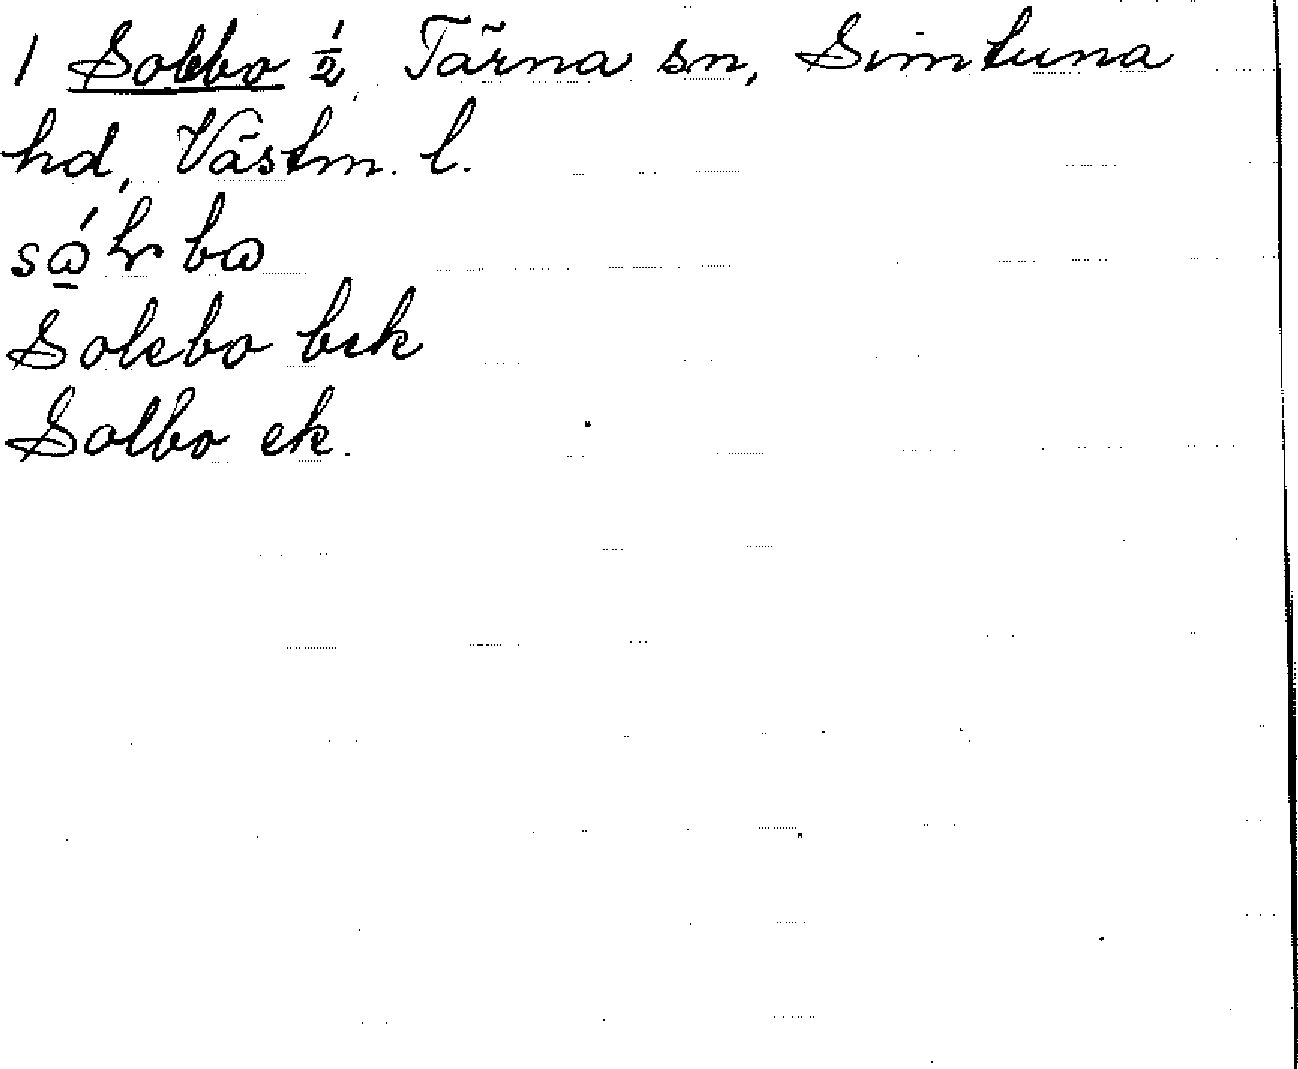 1 Solebo ½, Tärna sn, Simtuna
hd, Västm. l.
Solebo bek
Solbo ek.